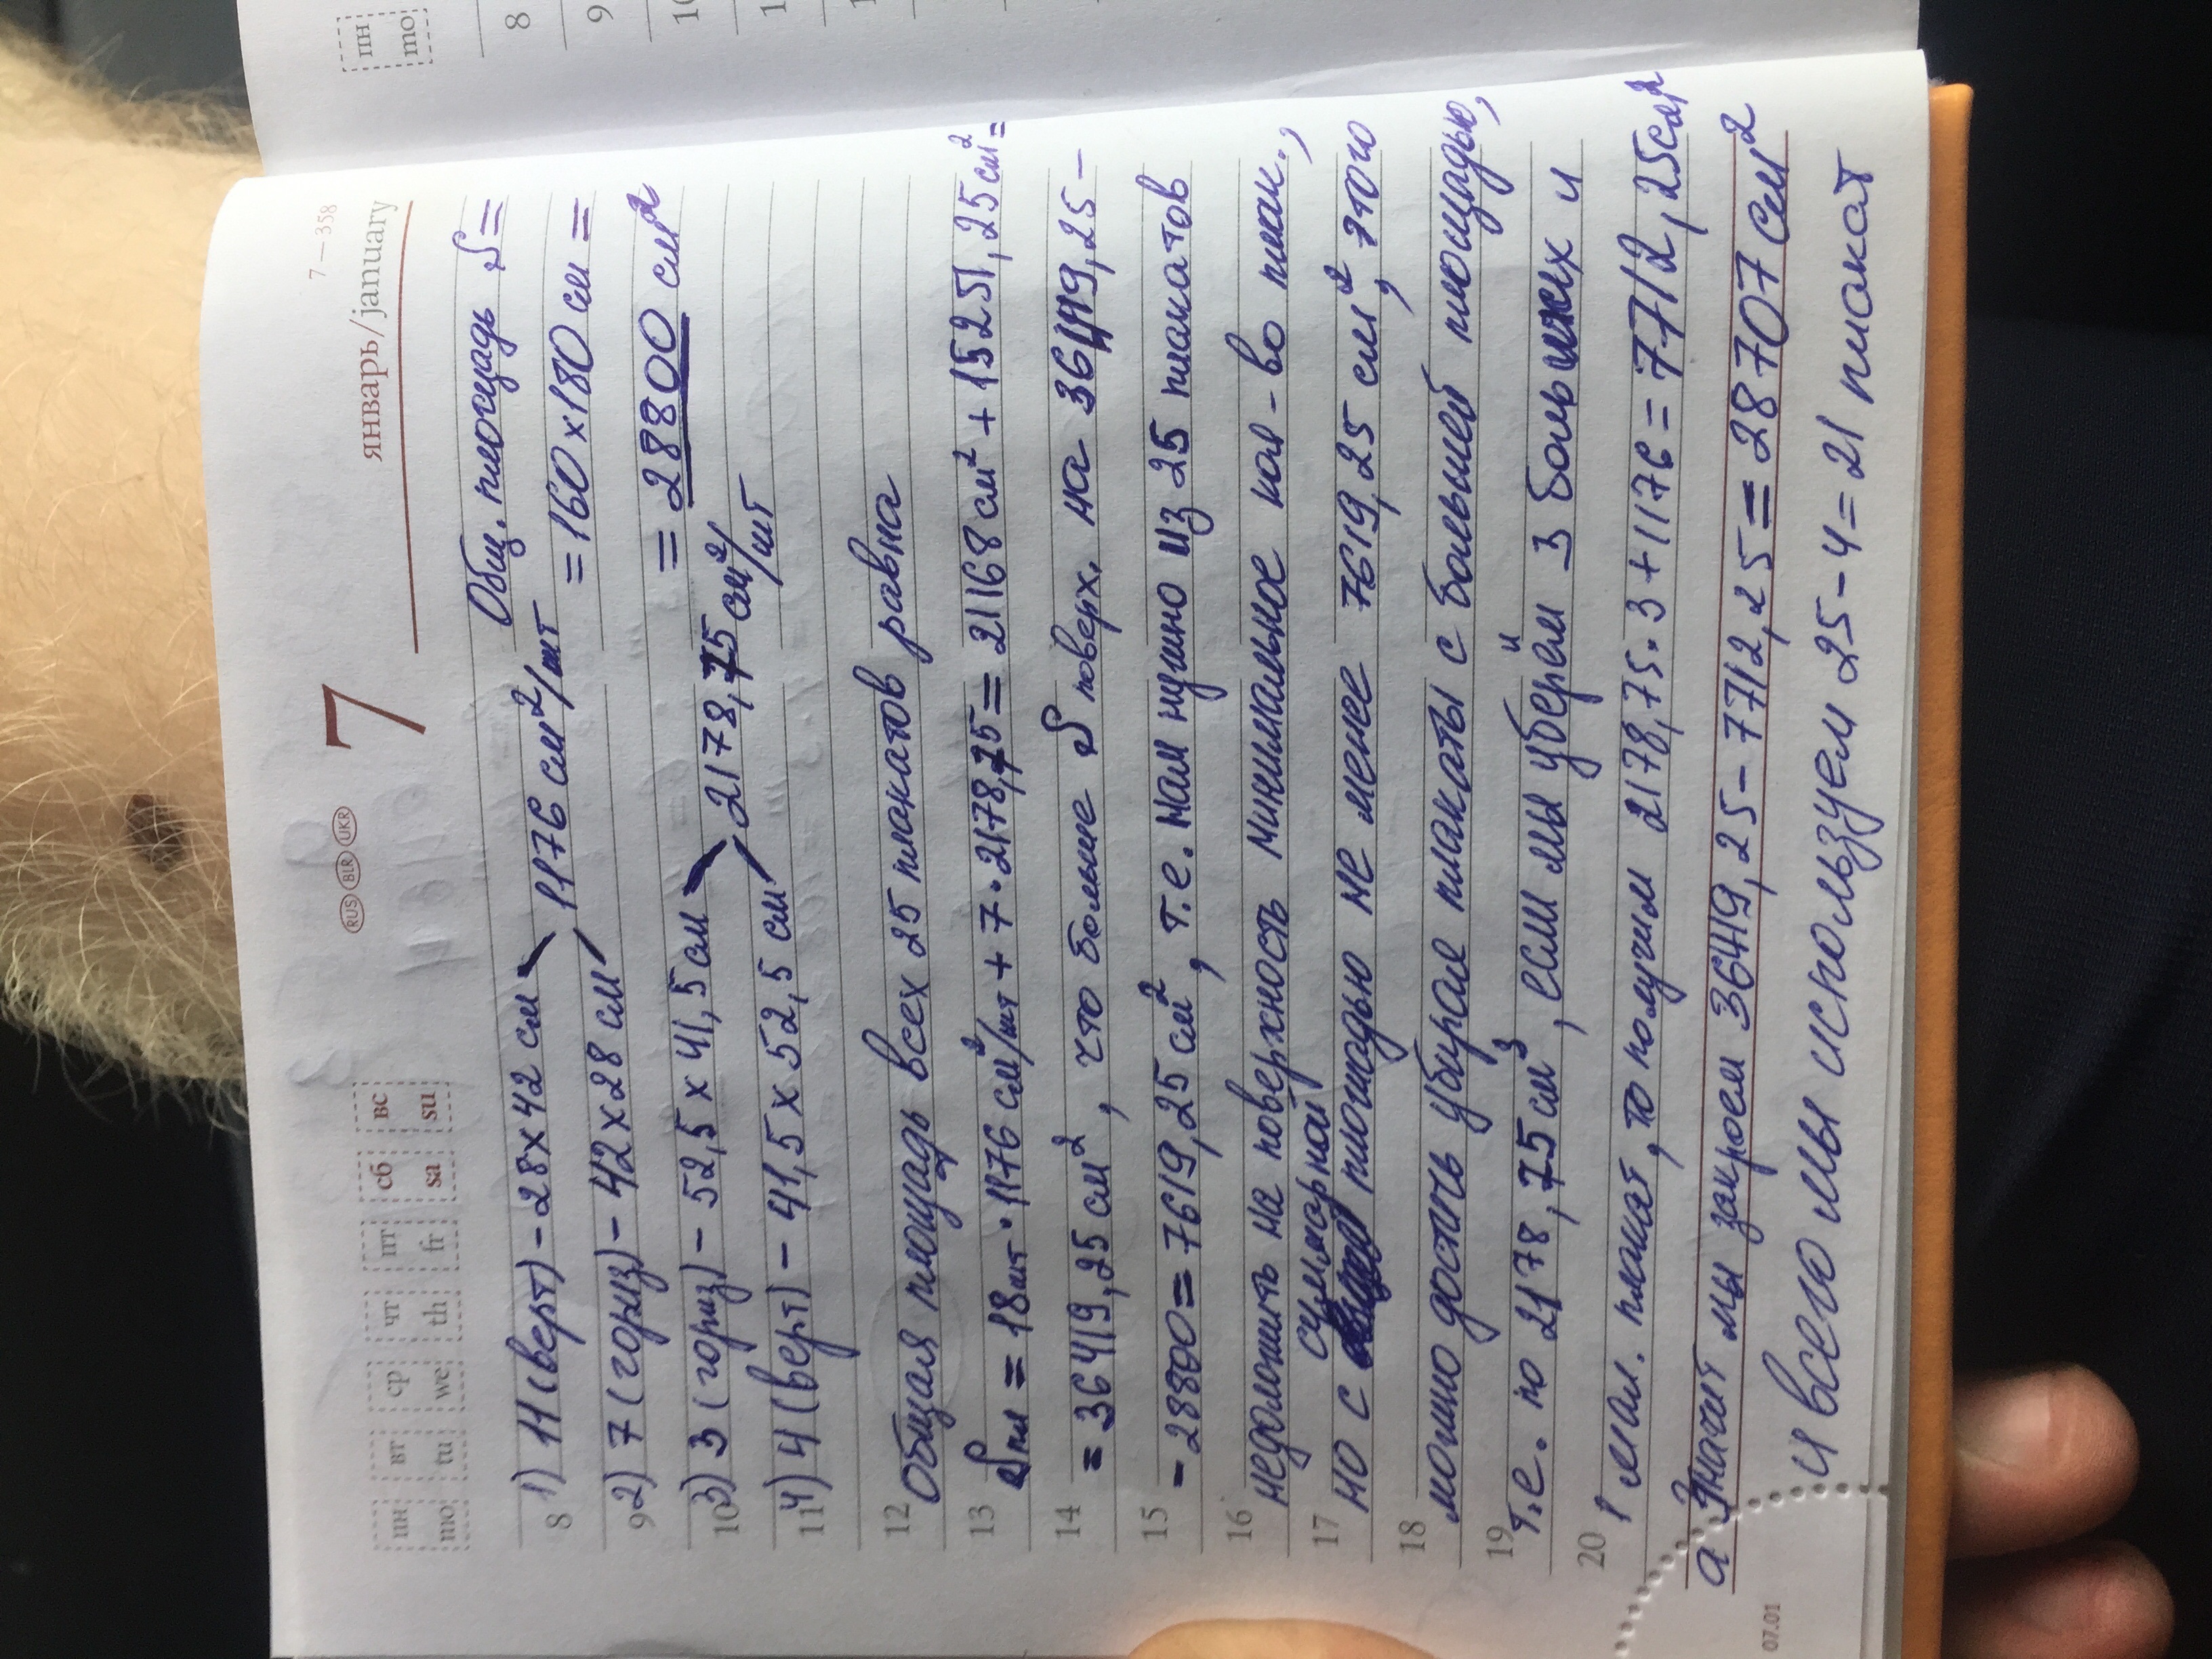 7—358
январь/january
7
RUS BLR UKR
пн вт ср чт пт сб вс
mo tu we th fr sa su
Общ. площадь S=
8 1) 11 (верт) – 28 x 42 см
1176 см²/шт
= 160 x 180 см =
9 2) 7 (гориз) – 42 x 28 см
= 28800 см²
10 3) 3 (гориз) – 52,5 x 41,5 см
2178,75 см²/шт
11 4) 4 (верт) – 41,5 x 52,5 см
12 Общая площадь всех 25 плакатов равна
13 Sпл = 18шт · 1176 см²/шт + 7 · 2178,75 = 21168 см² + 15251,25 см² =
14 = 36419,25 см², что больше S поверх. на 36419,25 –
15 – 28800 = 7619,25 см², т.е. нам нужно из 25 плакатов
16 недоложить на поверхность минимальное кол-во плак.,
суммарной
17 но с площадью не менее 7619,25 см², этого
18 можно достичь убирая плакаты с большей площадью,
19 т.е. по 2178,75 см³, если мы уберём 3 больших и
20 1 мал. плакат, то получим 2178,75 · 3 + 1176 = 7712,25 см²
а значит мы закроем 36419,25 – 7712,25 = 28707 см²
и всего мы используем 25 – 4 = 21 плакат
07.01
пн
mo
8
9
10